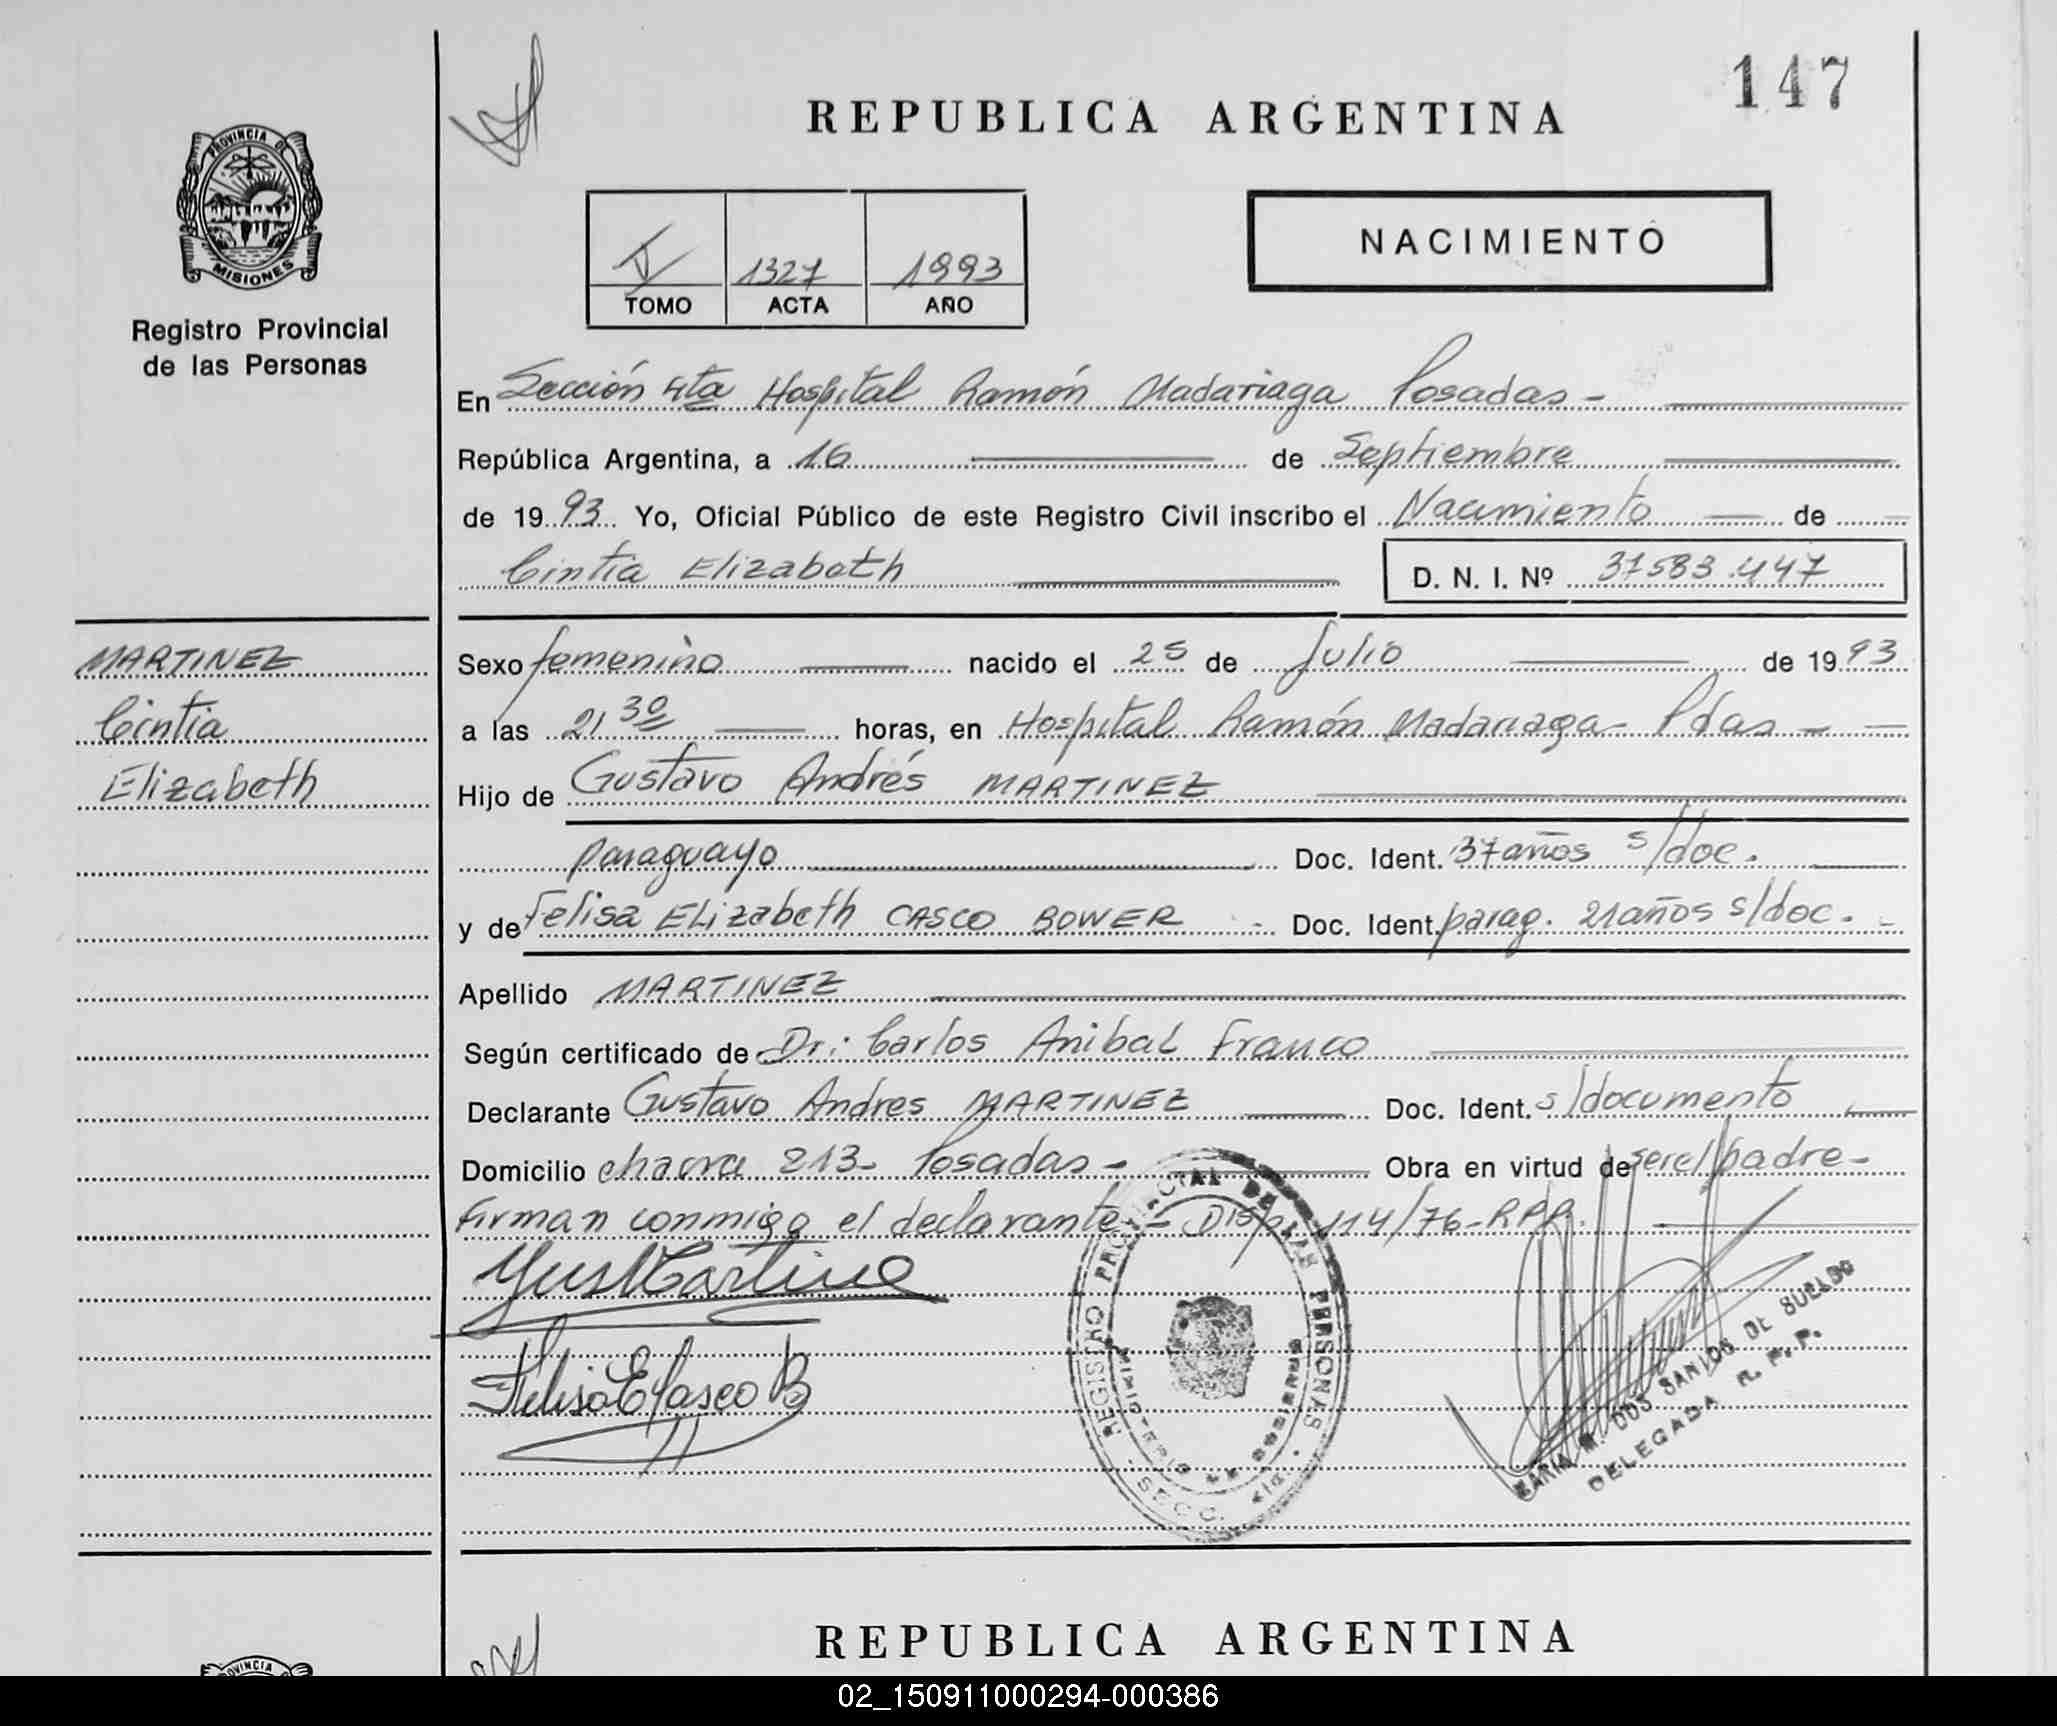 147
REPUBLICA ARGENTINA
PROVINCIA DE
MISIONES
Registro Provincial
de las Personas
V 1327 1993
TOMO ACTA AÑO
NACIMIENTO
En Sección 4ta Hospital Ramón Madariaga Posadas -
República Argentina, a 16 de Septiembre
de 1993 Yo, Oficial Público de este Registro Civil inscribo el Nacimiento de
Cintia Elizabeth D. N. I. Nº 37583.447
MARTINEZ
Cintia
Elizabeth
Sexo femenino nacido el 25 de Julio de 1993
a las 21 30 horas, en Hospital Ramón Madariaga - Pdas -
Hijo de Gustavo Andrés MARTINEZ
paraguayo Doc. Ident. 37 años s/doc.
y de Felisa Elizabeth CASCO BOWER - Doc. Ident. parag. 21 años s/doc. -
Apellido MARTINEZ
Según certificado de Dr: Carlos Anibal Franco
Declarante Gustavo Andres MARTINEZ Doc. Ident. s/documento
Domicilio chacra 213 - Posadas - Obra en virtud de ser el padre -
Firman conmigo el declarante - Disp. 114/76 - RPP.
Felisa E Casco B
REGISTRO PROVINCIAL DE LAS PERSONAS
MINISTERIO DE GOBIERNO
SECC.
MARIA M. DOS SANTOS DE SUELDO
DELEGADA R. P. P.
REPUBLICA ARGENTINA
PROVINCIA
02_150911000294-000386